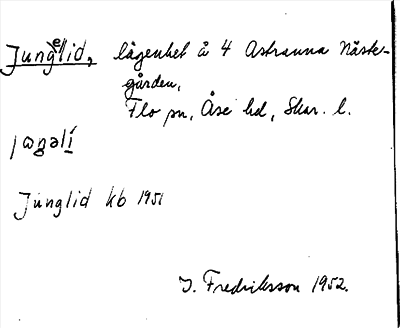 Jungelid, lägenhet å 4 Astranna Näste-
gården,
Flo sn, Åse hd, Skar. l.
jɷŋəlí
Junglid kb 1951
I. Fredriksson 1952.